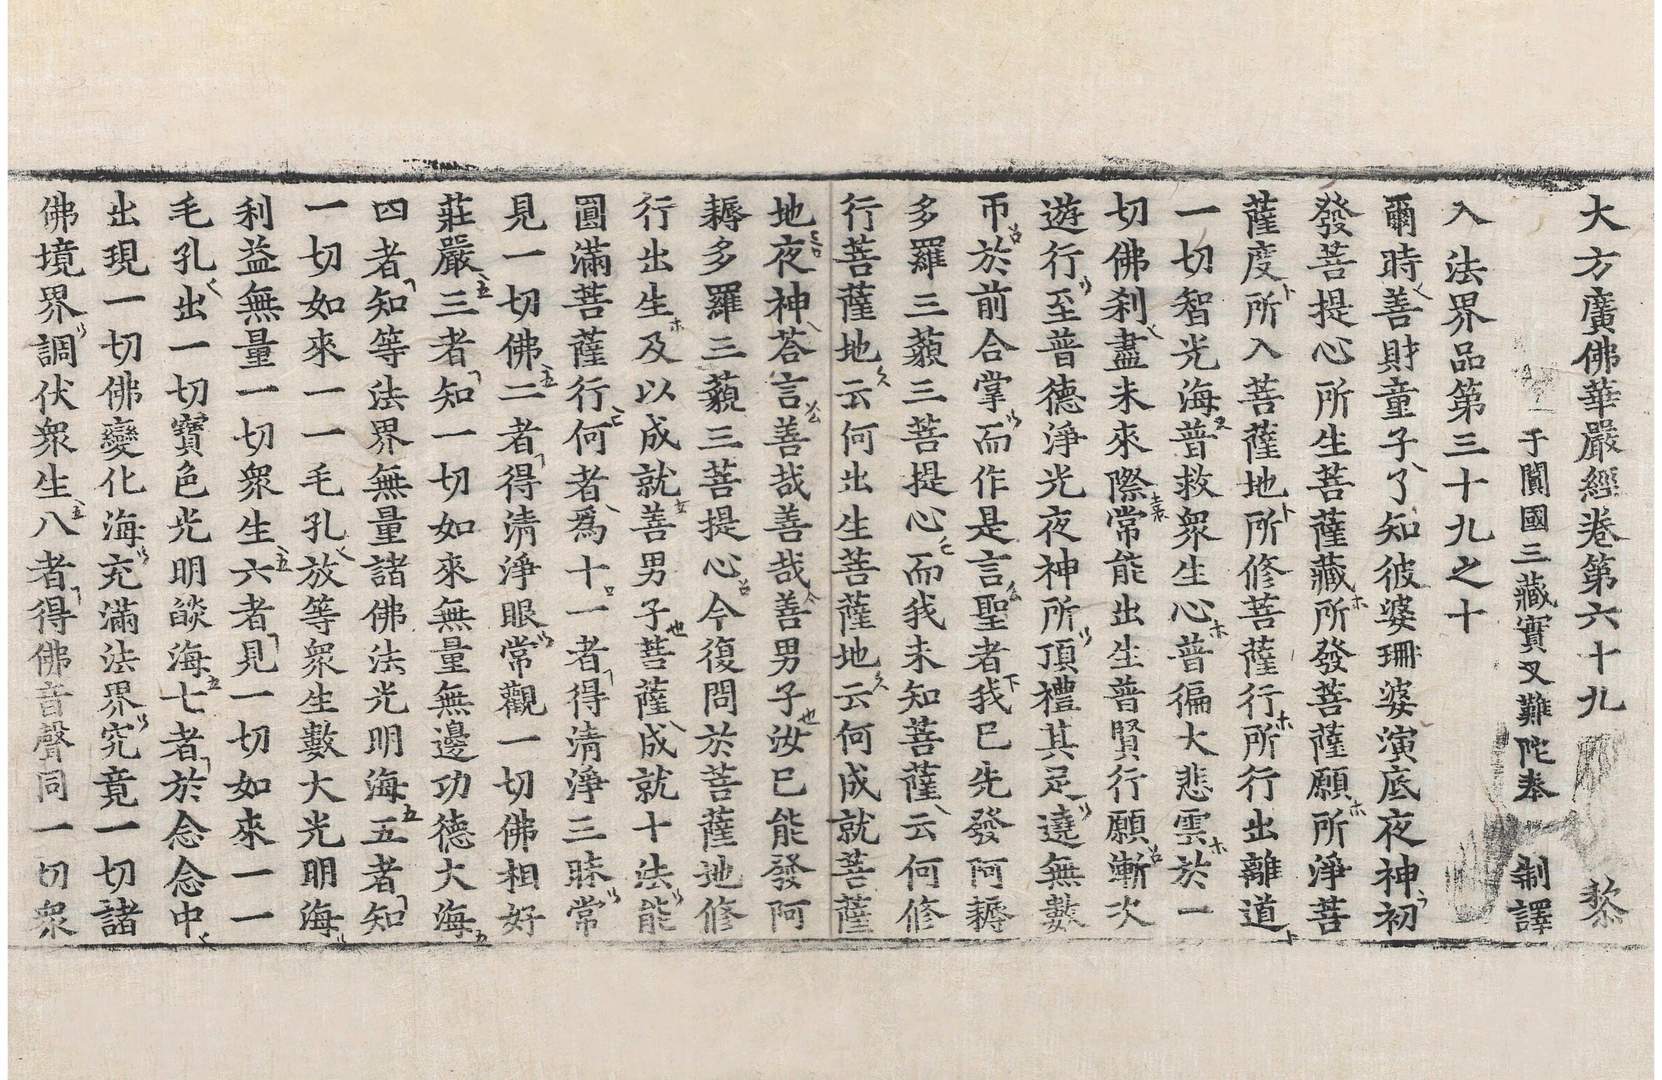 大方廣佛華嚴經卷第六十九 黎
于闐國三藏實叉難陀奉 制譯
入法界品第三十九之十
爾時善財童子了知彼婆珊婆演底夜神初
發菩提心所生菩薩藏所發菩薩願所淨菩
薩度所入菩薩地所修菩薩行所行出離道
一切智光海普救衆生心普徧大悲雲於一
切佛刹盡未來際常能出生普賢行願漸次
遊行至普德淨光夜神所頂禮其足遶無數
帀於前合掌而作是言聖者我已先發阿耨
多羅三藐三菩提心而我未知菩薩云何修
行菩薩地云何出生菩薩地云何成就菩薩
地夜神荅言善哉善哉善男子汝已能發阿
耨多羅三藐三菩提心今復問於菩薩地修
行出生及以成就善男子菩薩成就十法能
圓滿菩薩行何者爲十一者得清淨三昧常
見一切佛二者得清淨眼常觀一切佛相好
莊嚴三者知一切如來無量無邊功德大海
四者知等法界無量諸佛法光明海五者知
一切如來一一毛孔放等衆生數大光明海
利益無量一切衆生六者見一切如來一一
毛孔出一切寶色光明燄海七者於念念中
出現一切佛變化海充滿法界究竟一切諸
佛境界調伏衆生八者得佛音聲同一切衆